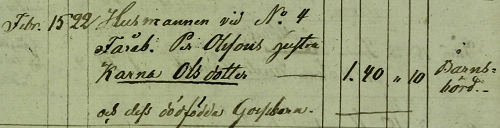 Febr. 15 22 Husmannen vid N.º 4
Fåräb. Per Olssons hustru
Karna Olsdotter 1. 40 „ 10 Barns-
börd.
och dess dödfödda Gossebarn.